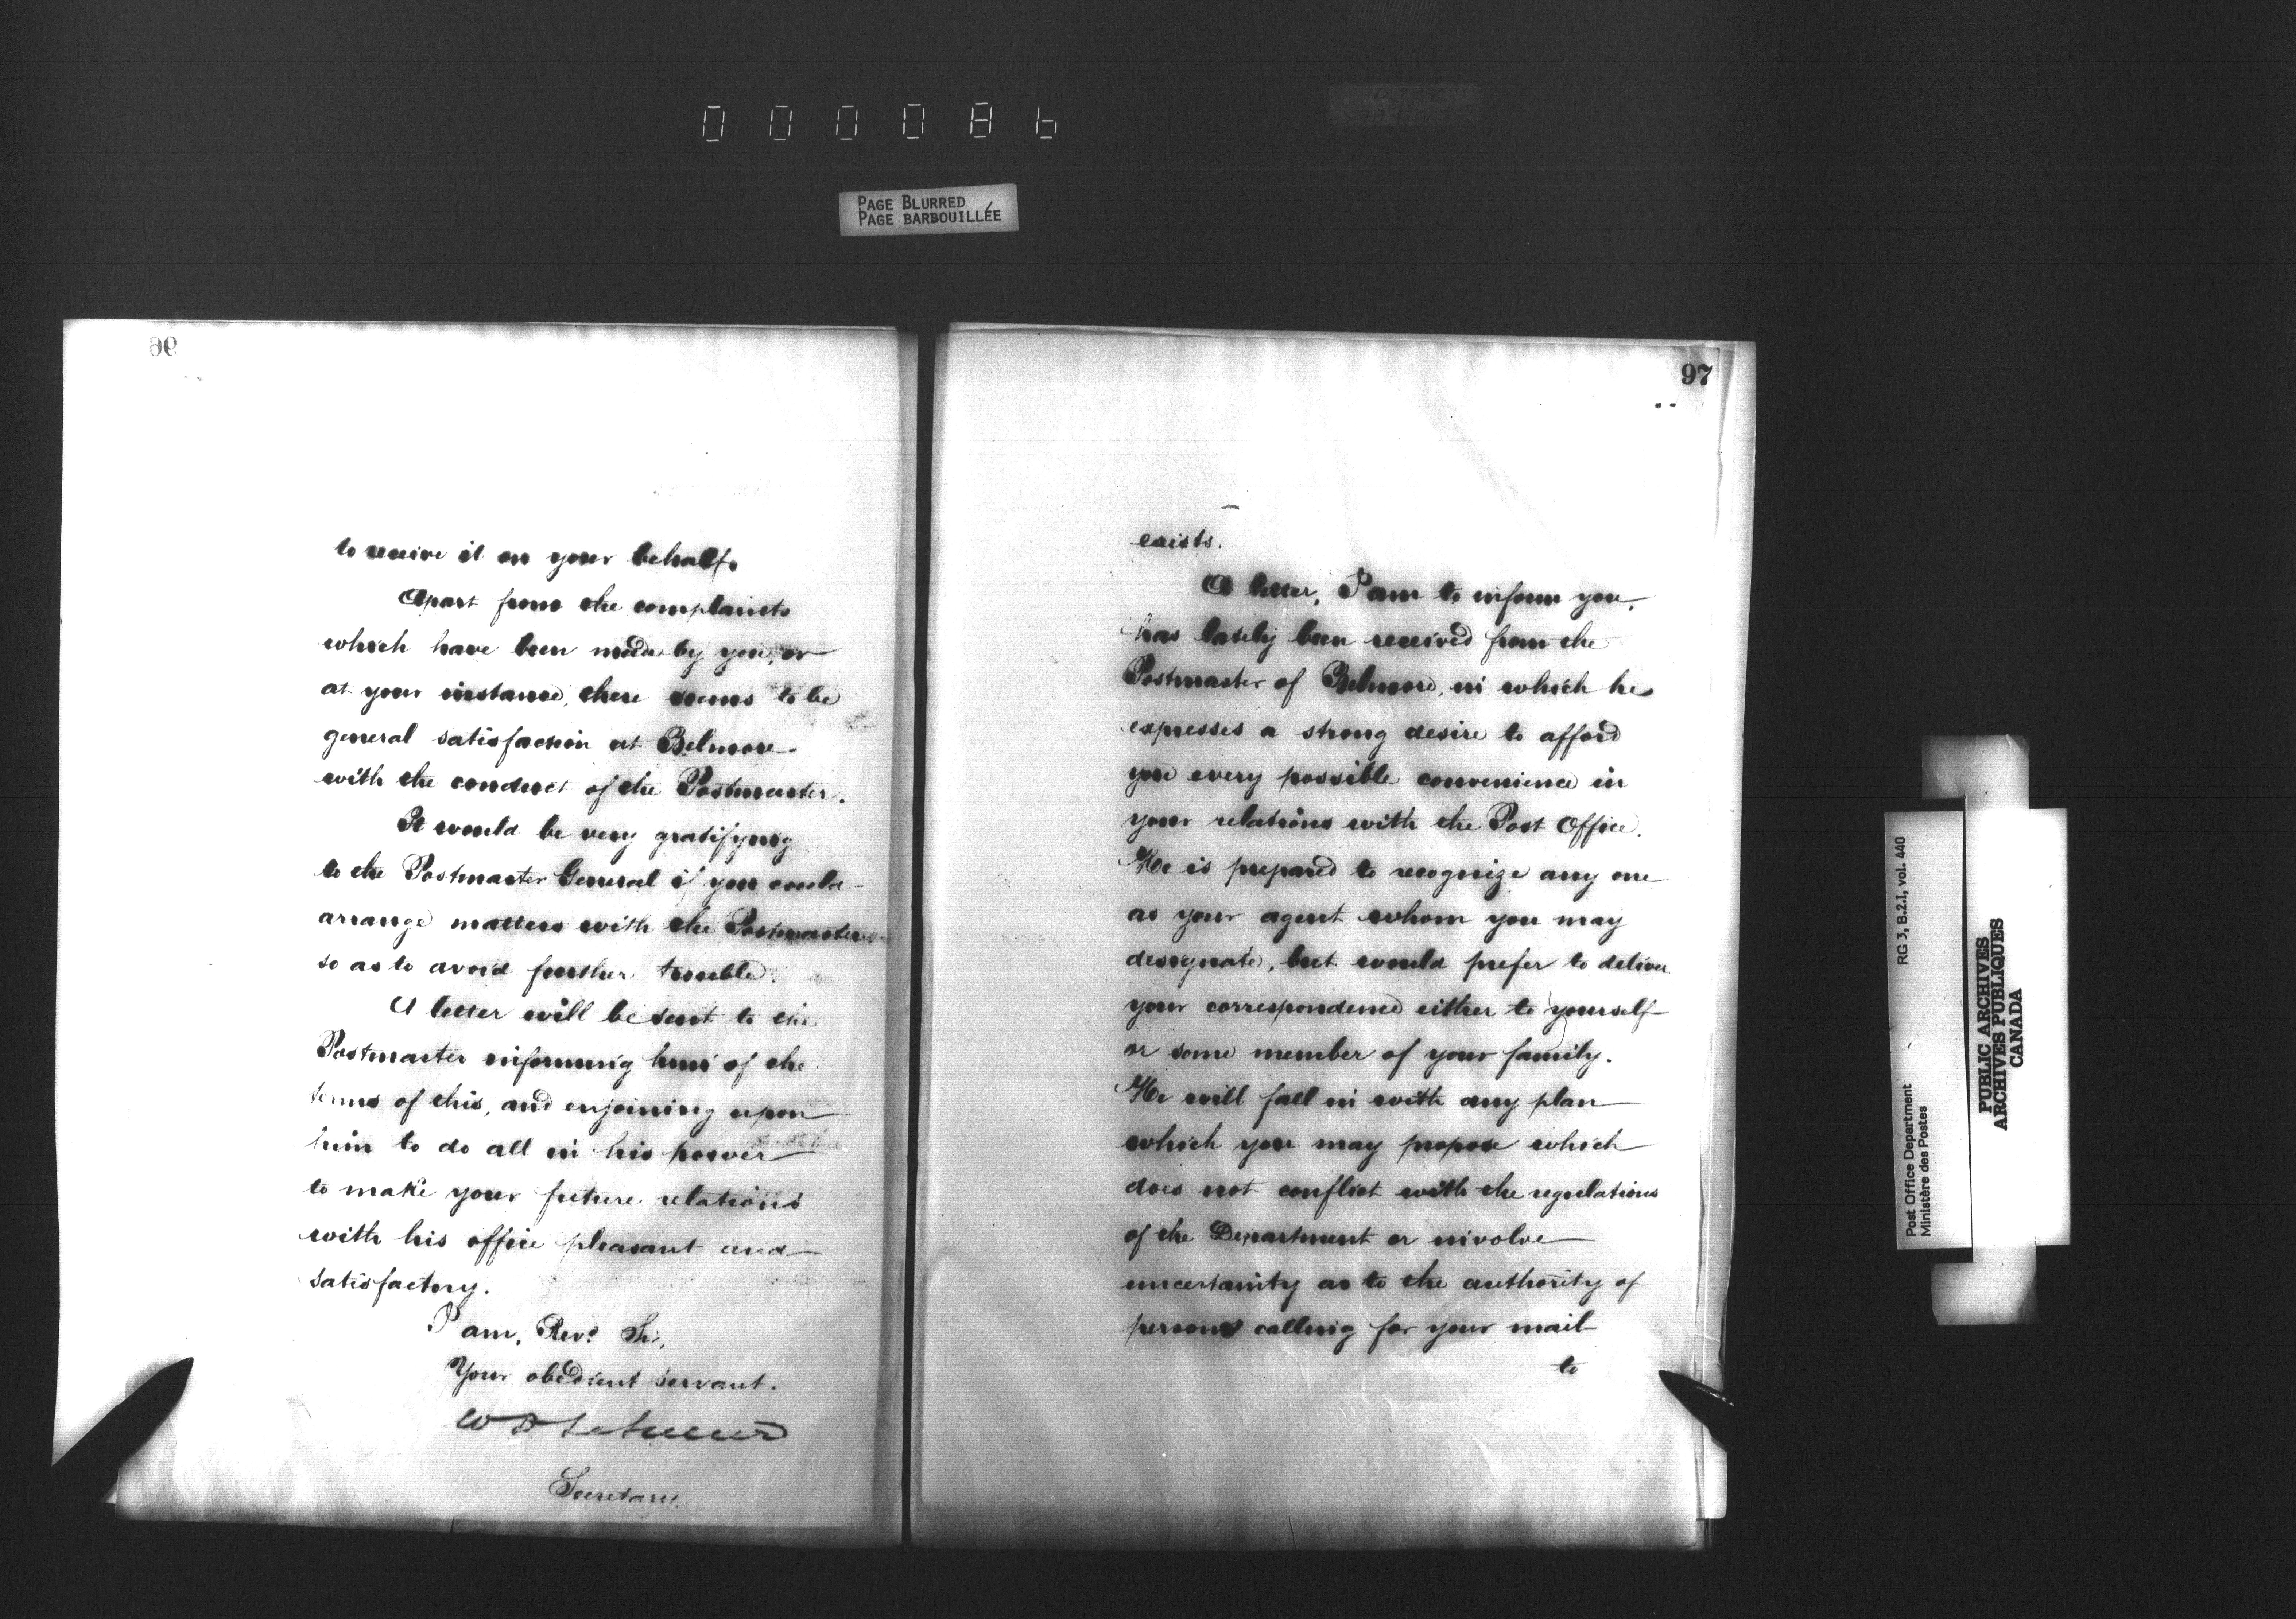 000086
PAGE BLURRED
PAGE BARBOUILLÉE
96
to receive it on your behalf.
Apart from the complaints
which have been made by you, or
at your instance, there seems to be
general satisfaction at Belmore
with the conduct of the Postmaster.
It would be very gratifying
to the Postmaster General if you could
arrange matters with the Postmaster
so as to avoid further trouble.
A letter will be sent to the
Postmaster informing him of the
terms of this, and enjoining upon
him to do all in his power
to make your future relations
with his office pleasant and
satisfactory.
I am, Revd. Sir,
Your obedient servant.
Secretary.
97
exists.
A letter, I am to inform you,
has lately been received from the
Postmaster of Belmore, in which he
expresses a strong desire to afford
you every possible convenience in
your relations with the Post Office.
He is prepared to recognize any one
as your agent whom you may
designate, but would prefer to deliver
your correspondence either to yourself
or some member of your family.
He will fall in with any plan
which you may propose which
does not conflict with the regulations
of the Department or involve
uncertainty as to the authority of
persons calling for your mail
to
Post Office Department
Ministère des Postes
RG 3, B.2.I, vol. 440
PUBLIC ARCHIVES
ARCHIVES PUBLIQUES
CANADA